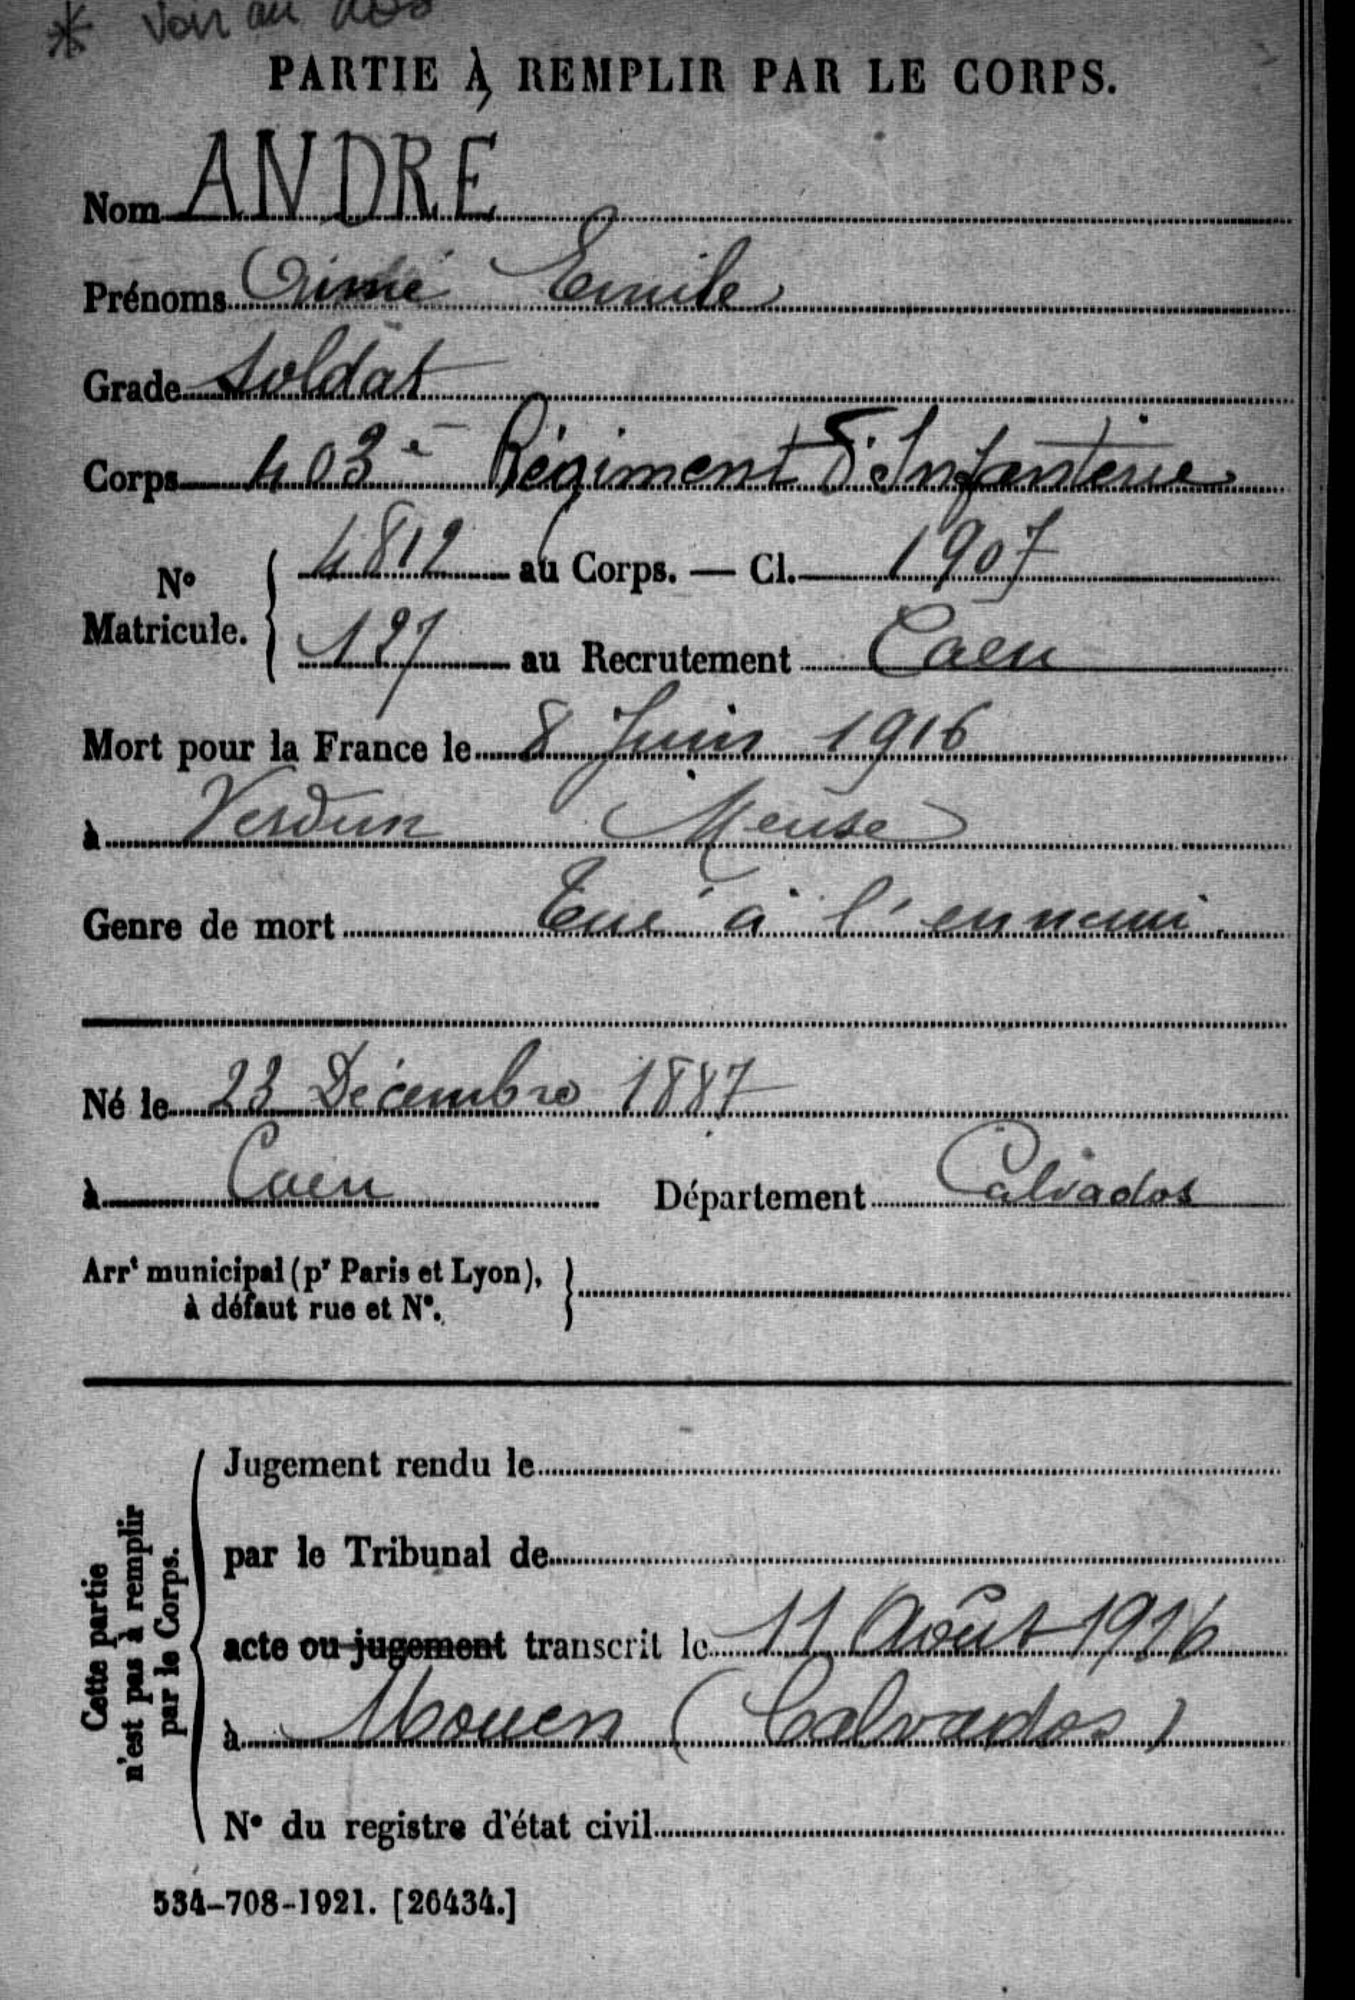 * Voir au dos
PARTIE À REMPLIR PAR LE CORPS.
Nom ANDRE
Prénoms Aimé Emile
Grade Soldat
Corps 403e Régiment D'Infanterie
No Matricule. { 4812 au Corps. — Cl. 1907
127 au Recrutement Caen
Mort pour la France le 8 Juin 1916
à Verdun (Meuse)
Genre de mort Tué à l'ennemi.
Né le 23 Décembre 1887
à Caen Département Calvados
Arrt municipal (pr Paris et Lyon), }
à défaut rue et No.
Cette partie n'est pas à remplir par le Corps.
Jugement rendu le
par le Tribunal de
acte ou jugement transcrit le 11 Août 1916
à Mouen (Calvados)
No du registre d'état civil
534-708-1921. [26434.]